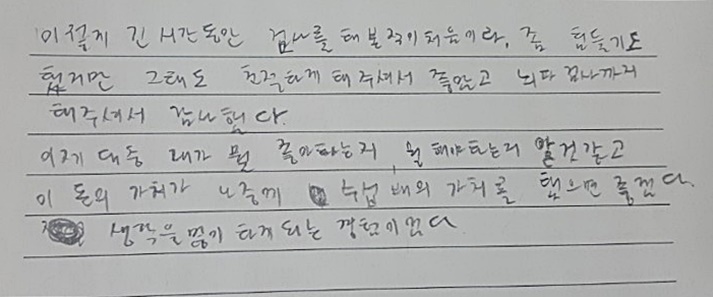 이렇게 긴 시간동안 검사를 해본적이 처음이라, 좀 힘들기도
했지만 그래도 친절하게 해주셔서 좋았고 뇌파 검사까지
해주셔서 감사했다.
이제 대충 내가 뭘 좋아하는지, 뭘 해야하는지 알것같고
이 돈의 가치가 나중에 수십 배의 가치를 했으면 좋겠다.
생각을 많이 하게되는 경험이었다